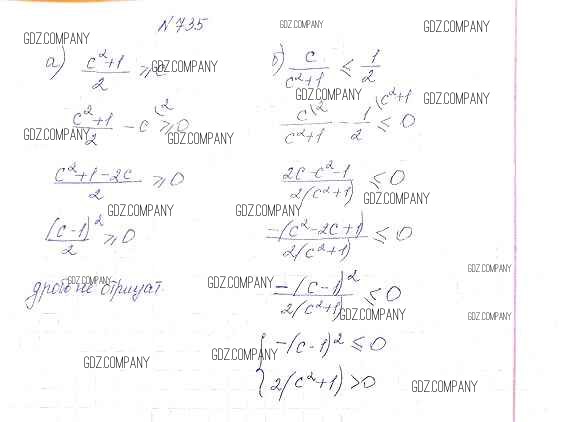 №735
GDZ.COMPANY GDZ.COMPANY GDZ.COMPANY
а) (c²+1)/2 ≥ c
GDZ.COMPANY
б) c/(c²+1) ≤ 1/2
GDZ.COMPANY GDZ.COMPANY
(c²+1)/2 - c\2 ≥ 0
GDZ.COMPANY GDZ.COMPANY
c\2/(c²+1) - 1\c²+1/2 ≤ 0
(c²+1-2c)/2 ≥ 0
(2c-c²-1)/(2(c²+1)) ≤ 0
GDZ.COMPANY GDZ.COMPANY GDZ.COMPANY
(c-1)²/2 ≥ 0
-(c²-2c+1)/(2(c²+1)) ≤ 0
GDZ.COMPANY GDZ.COMPANY GDZ.COMPANY
не отрицат
-(c-1)²/(2(c²+1)) ≤ 0
GDZ.COMPANY GDZ.COMPANY
{ -(c-1)² ≤ 0
GDZ.COMPANY GDZ.COMPANY
2(c²+1) > 0
GDZ.COMPANY